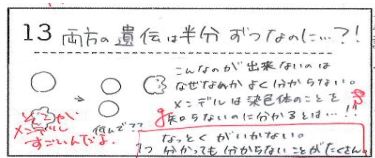 13 両方の遺伝は半分ずつなのに…?!
こんなのが出来ないのは
なぜなぬかよく分からない。
メンデルは染色体のことを
知らないのに分かるとは…!!
そんくらい
メンデルが
すごいんだよ。
何んで??
なっとくがいかない。
1つ分かっても分からないことがたくさん。